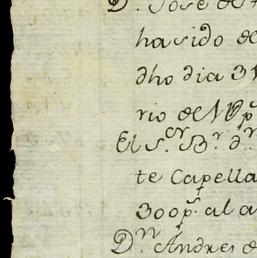 D.ⁿ José de
ha sido de
dho dia 31
rio de N
El S.ᵒʳ B.ʳ d.ⁿ
te Capella
300 p.ˢ al a
D.ⁿ Andres d